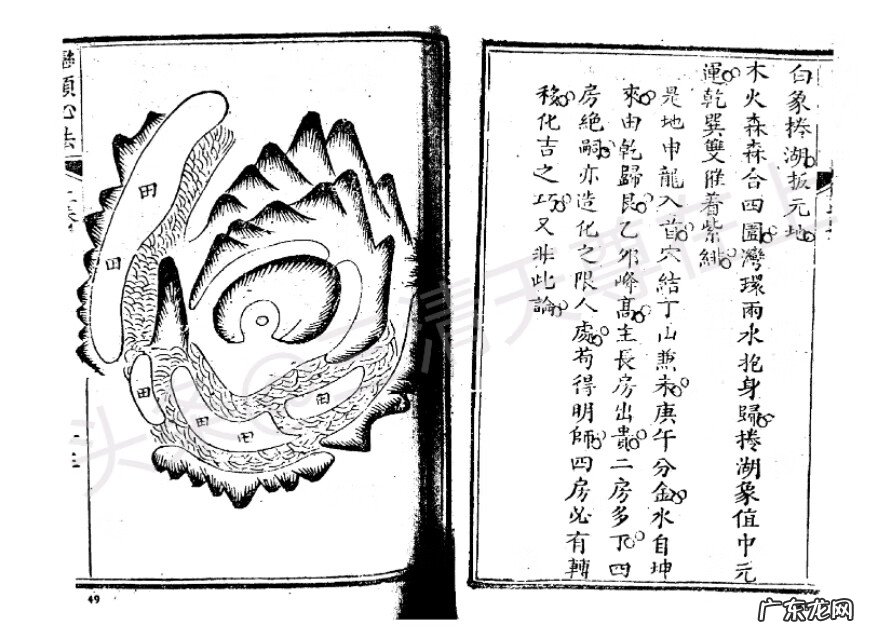 白象捲湖扳元地
木火森森合四圍灣環雨水抱身歸捲湖象值中元
運乾巽雙催着紫緋
是地申龍入首穴結丁山兼未庚午分金水自坤
來由乾歸艮乙卯峰高主長房出貴二房多丁四
房絕嗣亦造化之限人處苟得明師四房必有轉
移化吉之巧又非此論
巒頭心法
田
田
田
田
田
田
49
广东龙网